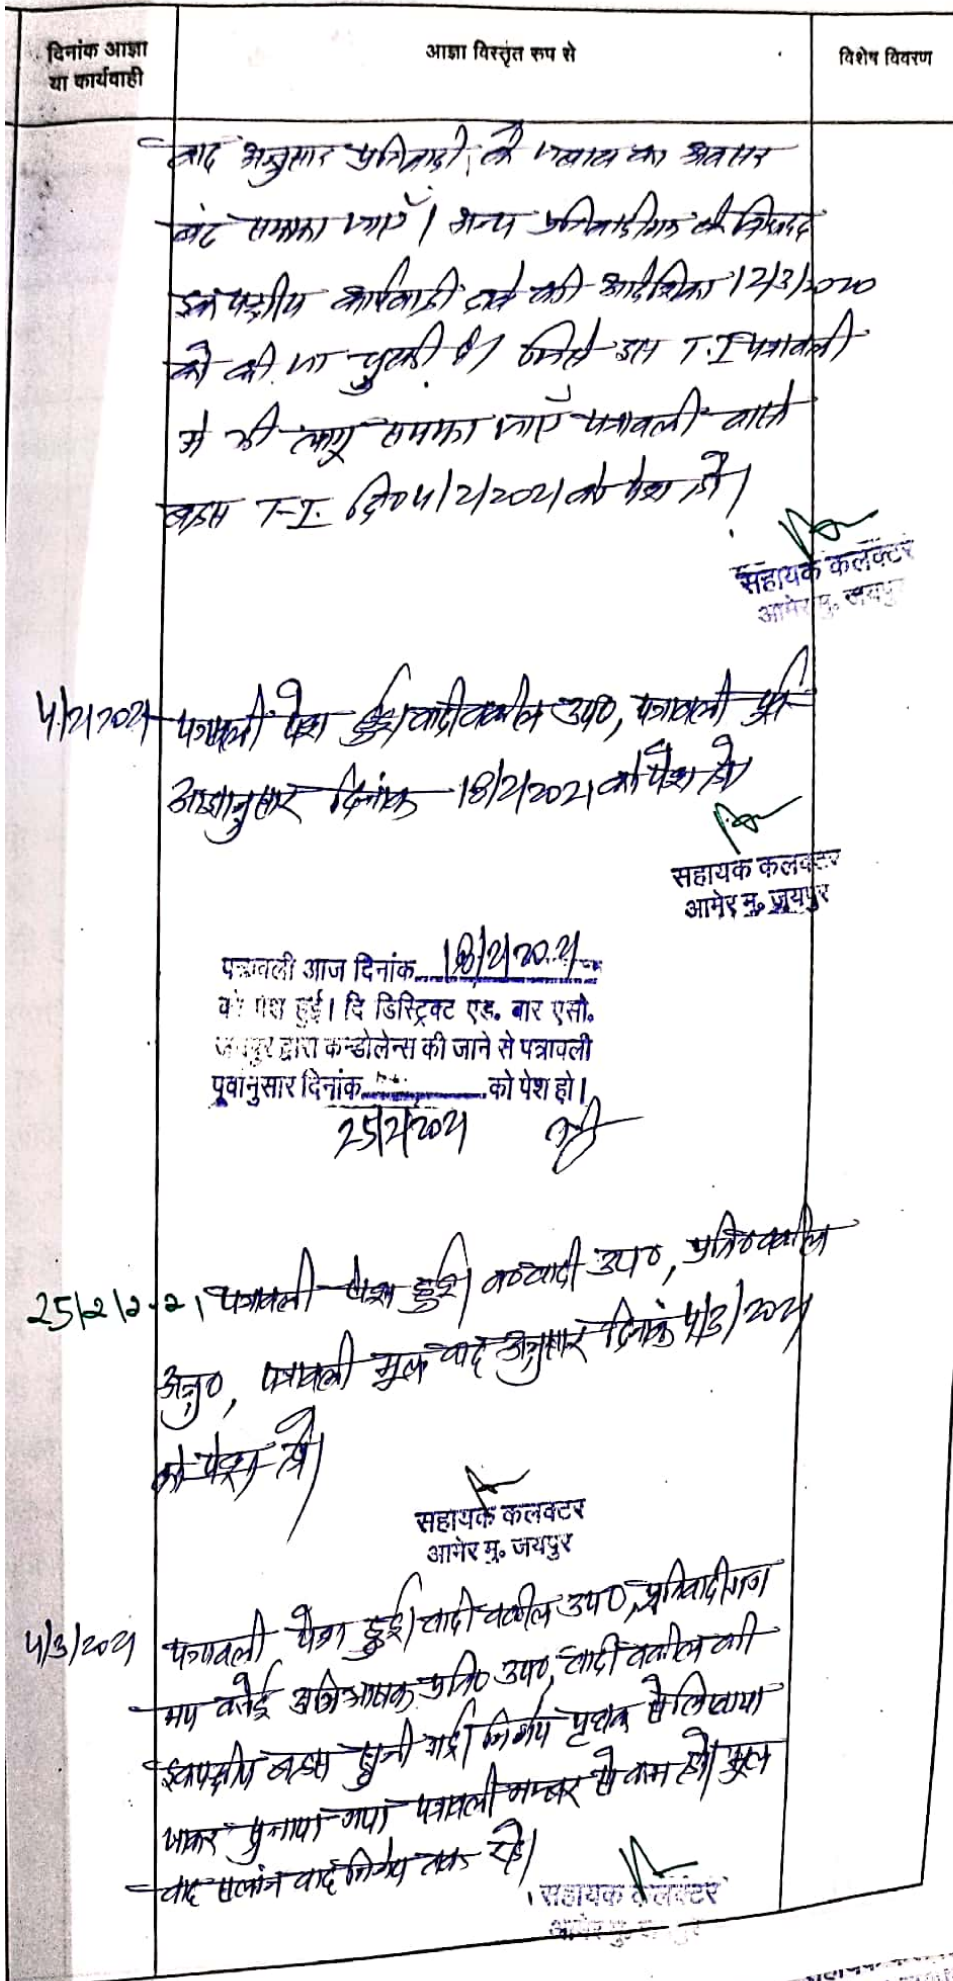 दिनांक आज्ञा
या कार्यवाही
आज्ञा विस्तृत रूप से
विशेष विवरण
वाद अनुसार प्रतिवादी के जवाब का अवसर
बंद समझा जाएं। अन्य प्रतिवादीगण के विरूद्ध
एक पक्षीय कार्यवाही दावे की आदेशिका 12/3/2020
को की जा चुकी है। जिसे इस T.I पत्रावली
मे भी लागू समझा जाए पत्रावली वास्ते
बहस T-I. दि० 4/2/2021 को पेश हो।
सहायक कलेक्टर
आमेर मु. जयपुर
4/2/2021
पत्रावली पेश हुई। वादी वकील उप०, पत्रावली पूर्व
आज्ञानुसार दिनांक 18/2/2021 को पेश हो
सहायक कलक्टर
आमेर मु. जयपुर
पत्रावली आज दिनांक 18/2/2021
को पेश हुई। दि डिस्ट्रिक्ट एड. बार एसो.
जयपुर द्वारा कन्डोलेन्स की जाने से पत्रावली
पूर्वानुसार दिनांक को पेश हो।
25/2/2021
25/2/2021
पत्रावली पेश हुई। व०वादी उप०, प्रति० वकील
अनु०, पत्रावली मूल वाद अनुसार दिनांक 4/3/2021
को पेश हो।
सहायक कलक्टर
आमेर मु. जयपुर
4/3/2021
पत्रावली पेश हुई। वादी वकील उप०, प्रतिवादीगण
मय कोई अभिभाषक प्रति० उप०, वादी वकील की
एकपक्षीय बहस सुनी गई। निर्णय पृथक से लिखाया
जाकर सुनाया गया पत्रावली नम्बर से कम हो। मूल
वाद संलग्न वाद निर्णय तक रहे।
सहायक कलेक्टर